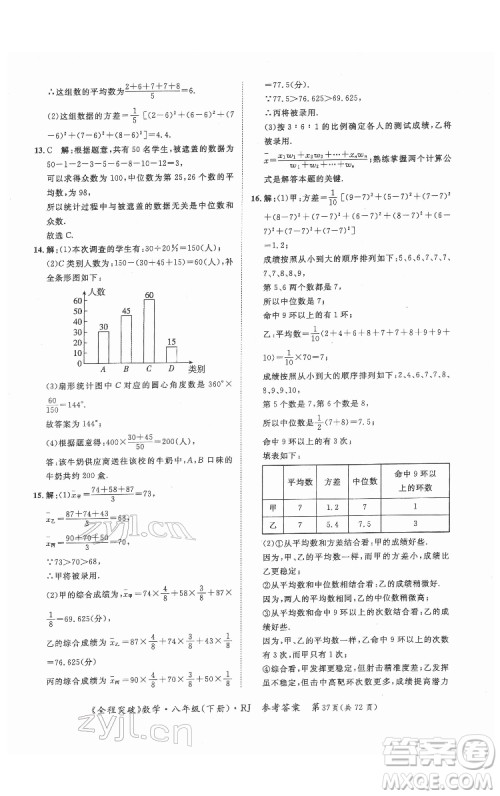 ∴这组数的平均数为(2+6+7+7+8)/5=6.
(2)这组数据的方差=1/5[(2-6)²+(6-6)²+(7
-6)²+(7-6)²+(8-6)²]=4.4.
13. C 解:根据题意,共有50名学生,被遮盖的数据为
50-1-2-3-6-8-10-12=8,
可以求得众数为100,中位数为98,不可求平
均数,为98,
所以统计量中与被遮盖的数据无关的是中位数和
众数.
故选C.
14. 解:(1)本次调查的学生有:30÷20%=150(人);
(2)C类别人数为150-(30+45+15)=60(人),补
全条形图如下:
人数
60
45
30
15
A B C D 类别
(3)扇形统计图中C对应的圆心角度数是360°×
60/150=144°.
故答案为144°;
(4)根据题意得:400×(30+45)/50=200(人),
答:该牛奶供应商送往该校的牛奶中,A,B口味的
牛奶共约200盒.
15. 解:(1)x̄甲=(74+58+87)/3=73,
x̄乙=(87+74+43)/3=68,
x̄丙=(90+70+50)/3=70,
∵73>70>68,
∴甲将被录用.
(2)甲的综合成绩为:x̄甲=74×4/8+58×3/8+87×
1/8=69.625(分)
乙的综合成绩为x̄乙=87×4/8+74×3/8+43×1/8
=76.625(分)
丙的综合成绩为x̄丙=90×4/8+70×3/8+50×1/8
=77.5(分).
∵77.5>76.625>69.625,
∴丙将被录用.
(3)按3:6:1的比例确定各人的测试成绩,
熟练掌握两个计算公
式是解答本题的关键.
16. 解:(1)甲:方差=1/10[(9-7)²+(5-7)²+(7-7)²
+(8-7)²+(7-7)²+(6-7)²+(8-7)²+(6-
7)²+(7-7)²+(7-7)²]
=1.2;
成绩按照从小到大的顺序排列为:5,6,6,7,7,7,
7,8,8,9,
第5,6两个数都是7,
所以中位数是7;
命中9环以上的有1环;
乙:平均数=1/10(2+4+6+8+7+7+8+9+9+
10)=1/10×70=7;
成绩按照从小到大的顺序排列为:2,4,6,7,7,8,
8,9,9,10,
第5个数是7,第6个数是8,
所以中位数是1/2(7+8)=7.5,
命中9环以上的有3次;
填表如下:
平均数 方差 中位数 命中9环以上的环数
甲 7 1.2 7 1
乙 7 5.4 7.5 3
(2)①从平均数和方差结合看;
因为,甲、乙平均数一样,而甲的方差小,成绩比
乙更稳定;
②从平均数和中位数结合看,乙的成绩稍好;
因为,甲、乙平均数一样,而乙的中位数比甲大,
所以,乙的成绩稍好.
③从平均数和命中9环以上结合看,乙的成绩
稍好;
因为,甲、乙平均数一样,而乙命中9环以上的次
数比甲多,
所以,乙的成绩稍好.
④综合看,甲发挥比较稳定,但射靶能力不如乙.
《全程突破》数学·八年级(下册)·RJ 参考答案 第37页(共72页)
zyjl.cn
zyjl.cn
作业精灵
MXQE.COM